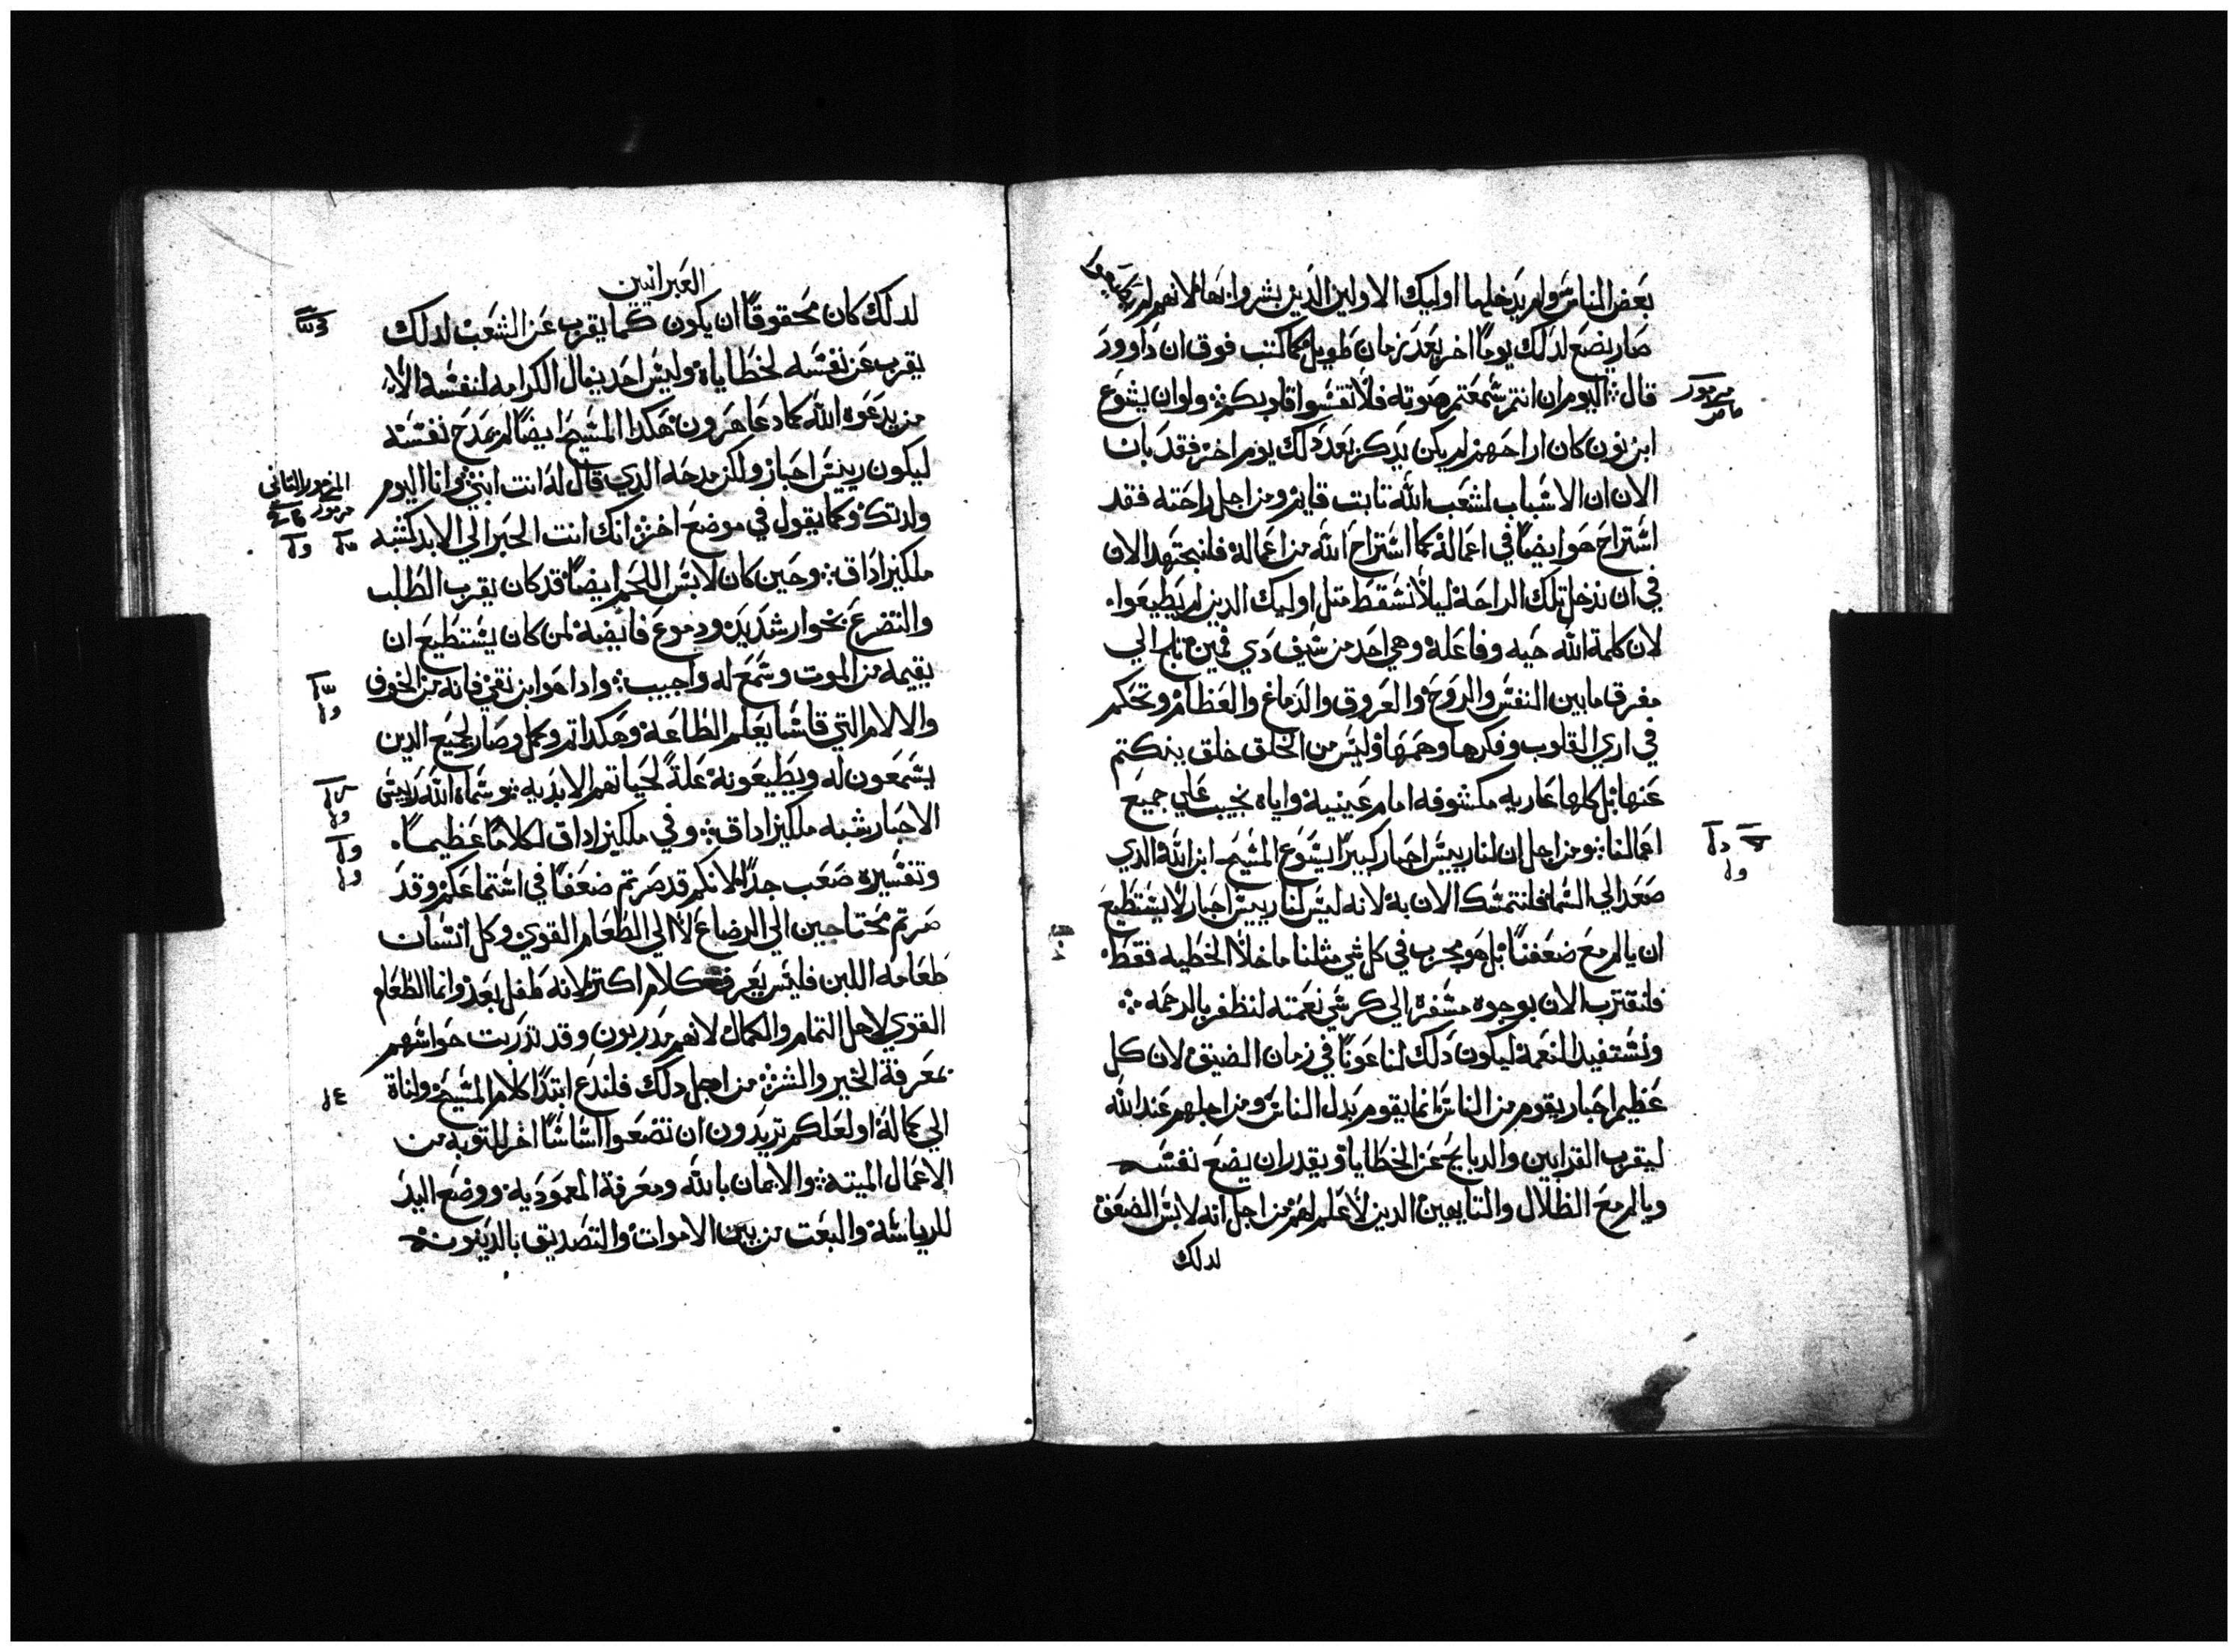 بعض الناس ولم يدخلها اوليك الاولين الدين بشروا بها لانهم لم
صار يضع لدلك يوماً اخر بعد زمان طويل كما كتب فوق ان داوود
قال اليوم ان انتم سمعتم صوته فلا تقسوا قلوبكم ولو ان يشوع
مزمور
ابن نون كان اراحهم لم يكن يدكر بعد دلك يوم اخر فقد بات
الان ان الاسبات لشعب الله تابت قايم ومن اجل راحته فقد
استراح هو ايضاً في اعماله كما استراح الله من اعماله فلنجتهد الان
في ان ندخل تلك الراحة ليلا نسقط متل اوليك الدين لم يطيعوا
لان كلمة الله حيه وفاعله وهي احد من سيف دي فمين تلج الي
مفرق ما بين النفس والروح والعروق والدماغ والعظام وتحكم
في اري القلوب وفكرها وهمها وليس من الخلق خلق ينكتم
عنها بل كلها عاريه مكشوفه امام عينيه واياه نجيب علي جميع
اعمالنا ومن اجل ان لنا رييس احبار كبيراً يسوع المسيح ابن الله الدي
صعد الي السما فلنتمسك الان به لانه ليس لنا رييس احبار لا يستطيع
ان يالم مع ضعفنا بل هو مجرب في كل شي مثلنا ما خلا الخطيه فقط
فلنقترب الان بوجوه مسفره الي كرسي نعمته لنظفر بالرحمه
ونستفيد النعمة ليكون دلك لنا عوناً في زمان الضيق لان كل
عظيم احبار يقوم من الناس انما يقوم بدل الناس ومن اجلهم عند الله
ليقرب القرابين والدبايح عن الخطايا ويقدر ان يضع نفسه
ويالم مع الظلال والتايهين الدين لا علم لهم من اجل انه لابس الضعف
لدلك
العبرانيين
لدلك كان محقوقاً ان يكون كما يقرب عن الشعب لدلك
يقرب عن نفسه لخطاياه وليس احد ينال الكرامه لنفسه الا
من يدعوه الله كما دعا هرون هكدا المسيح ايضاً لم يمدح نفسه
ليكون رييس احبار ولكن مدحه الدي قال له انت ابني وانا اليوم
المزمور الثاني
ولدتك وكما يقول في موضع اخر انك انت الحبر الي الابد كشبه
مزمور
ملكيزاداق وحين كان لابس اللحم ايضاً قد كان يقرب الطلب
والتضرع بخوار شديد ودموع فايضه لمن كان يستطيع ان
يقيمه من الموت وسمع له واجيب وادا هو ابن نقي فانه من الخوف
والالام التي قاسا يعلم الطاعة وهكدا تم وكمل وصار لجميع الدين
يسمعون له ويطيعونه علة لحياتهم الابديه وسماه الله رييس
الاحبار شبه ملكيزاداق وفي ملكيزاداق لكلاماً عظيماً
وتفسيره صعب جداً لانكم قد صرتم ضعفاً في استماعكم وقد
صرتم محتاجين الي الرضاع لا الي الطعام القوي وكل انسان
طعامه اللبن فليس يعرف كلام اكتر لانه طفل بعد وانما الطعام
القوي لاهل التمام والكمال لانهم مدربون وقد تدربت حواسهم
بمعرفة الخير والشر من اجل دلك فلندع ابتدا كلام المسيح ولناة
الي كماله او لعلكم تريدون ان تضعوا اساساً اخر للتوبه من
الاعمال الميته والايمان بالله ومعرفة المعموديه ووضع اليد
للرياسه والبعت من بين الاموات والتصديق بالدينونه